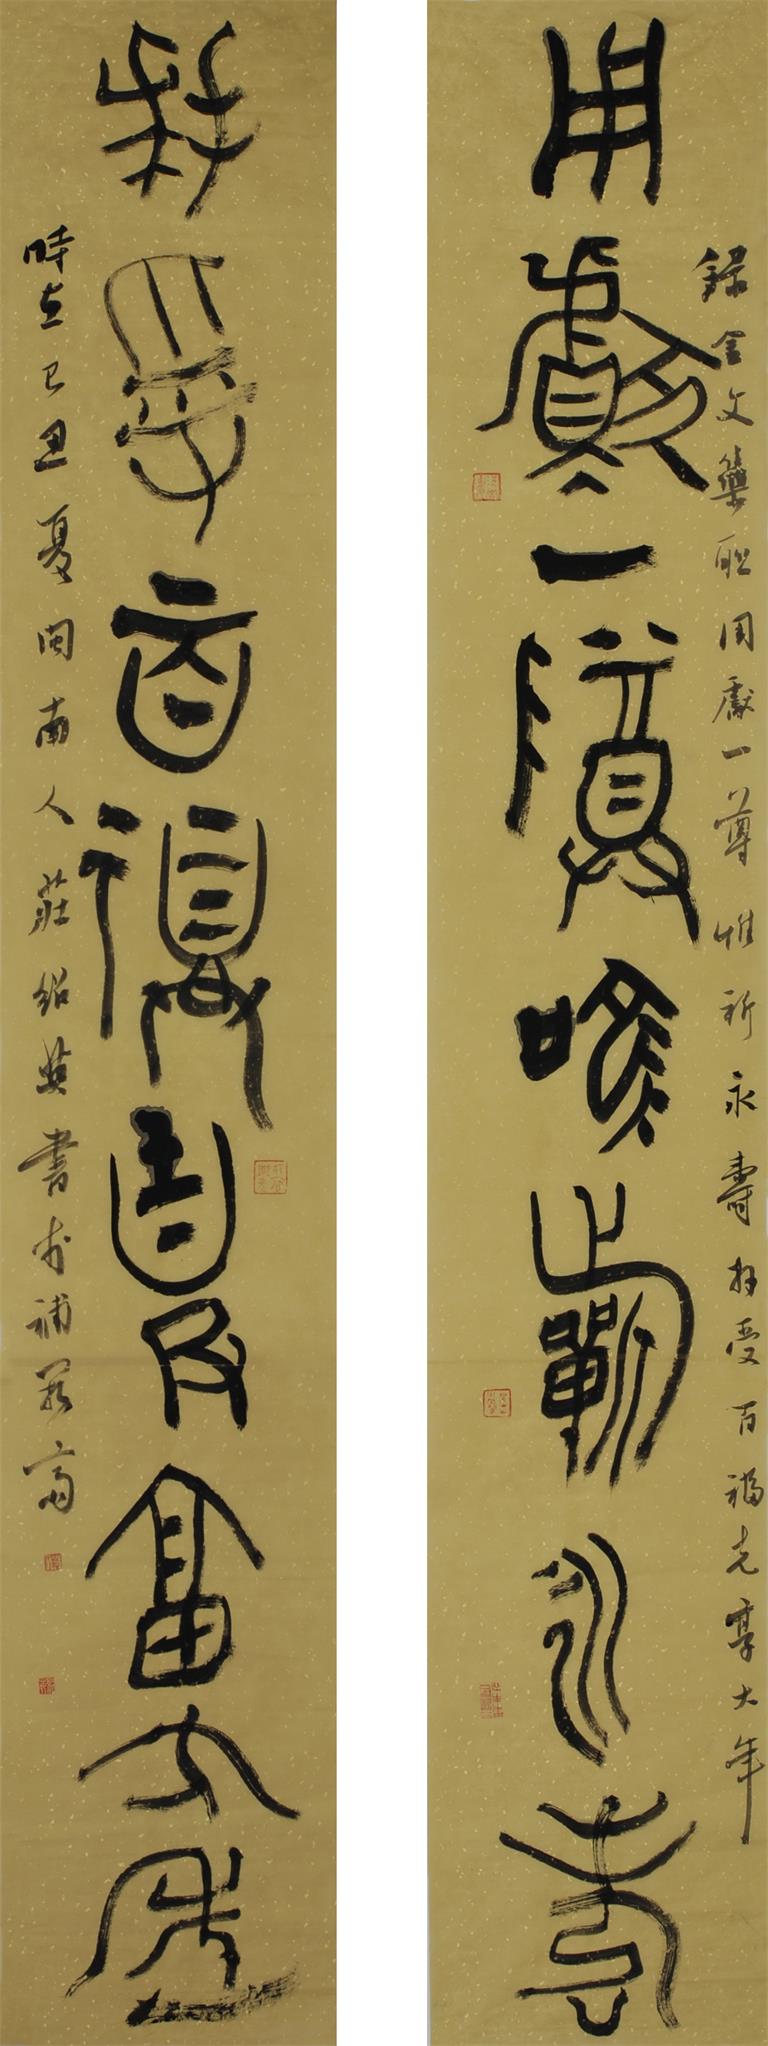 錄金文集聯用獻一尊惟祈永壽將受百福克享大年
用獻一尊唯祈永壽
將受百福克享大年
時在己丑夏閩南人莊紹書於補齋